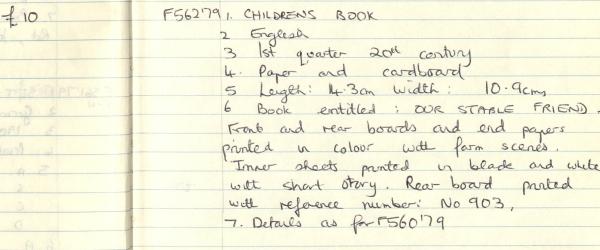 £10 F562'79 1. CHILDRENS BOOK
2 English
3 1st quarter 20th century
4. Paper and cardboard
5 Length: 14.3cm width: 10.9cms
6 Book entitled: OUR STABLE FRIEND.
Front and rear boards and end papers
printed in colour with farm scenes.
Inner sheets printed in black and white
with short story. Rear board printed
with reference number: No 903.
7. Details as for F560'79